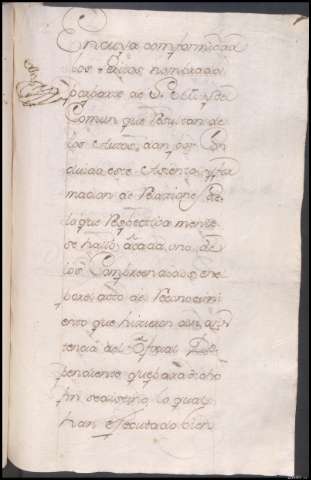 En cuya comformidad
los Peritos nombrados
por parte de S. E. el
Comun que Resultan de
los Autos, dan por Con
cluida este Asiento, y for
macion de Relaziones de
lo que Respectiva mente
se hallò à cada uno de
los Comprehendidos, en e
l acto de Reconocimi
ento que hizieron con asis
tencia del Oficial
pendiente que para dicho
fin se destino, lo qual
han efectuado bien